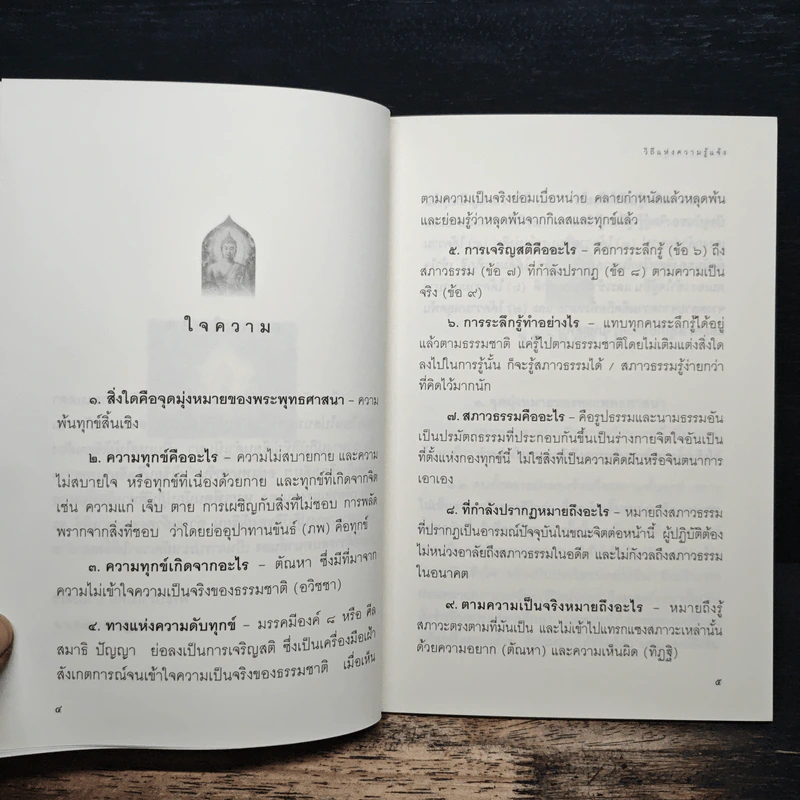 ใจความ
๑. สิ่งใดคือจุดมุ่งหมายของพระพุทธศาสนา – ความ
พ้นทุกข์สิ้นเชิง
๒. ความทุกข์คืออะไร – ความไม่สบายกาย และความ
ไม่สบายใจ หรือทุกข์ที่เนื่องด้วยกาย และทุกข์ที่เกิดจากจิต
เช่น ความแก่ เจ็บ ตาย การเผชิญกับสิ่งที่ไม่ชอบ การพลัด
พรากจากสิ่งที่ชอบ ว่าโดยย่ออุปาทานขันธ์ (ภพ) คือทุกข์
๓. ความทุกข์เกิดจากอะไร – ตัณหา ซึ่งมีที่มาจาก
ความไม่เข้าใจความเป็นจริงของธรรมชาติ (อวิชชา)
๔. ทางแห่งความดับทุกข์ – มรรคมีองค์ ๘ หรือ ศีล
สมาธิ ปัญญา ย่อลงเป็นการเจริญสติ ซึ่งเป็นเครื่องมือเฝ้า
สังเกตการณ์จนเข้าใจความเป็นจริงของธรรมชาติ เมื่อเห็น
๔
วิถีแห่งความรู้แจ้ง
ตามความเป็นจริงย่อมเบื่อหน่าย คลายกำหนัดแล้วหลุดพ้น
และย่อมรู้ว่าหลุดพ้นจากกิเลสและทุกข์แล้ว
๕. การเจริญสติคืออะไร – คือการระลึกรู้ (ข้อ ๖) ถึง
สภาวธรรม (ข้อ ๗) ที่กำลังปรากฏ (ข้อ ๘) ตามความเป็น
จริง (ข้อ ๙)
๖. การระลึกรู้ทำอย่างไร – แทบทุกคนระลึกรู้ได้อยู่
แล้วตามธรรมชาติ แค่รู้ไปตามธรรมชาติโดยไม่เติมแต่งสิ่งใด
ลงไปในการรู้นั้น ก็จะรู้สภาวธรรมได้ / สภาวธรรมรู้ง่ายกว่า
ที่คิดไว้มากนัก
๗. สภาวธรรมคืออะไร – คือรูปธรรมและนามธรรมอัน
เป็นปรมัตถธรรมที่ประกอบกันขึ้นเป็นร่างกายจิตใจอันเป็น
ที่ตั้งแห่งกองทุกข์นี้ ไม่ใช่สิ่งที่เป็นความคิดฝันหรือจินตนาการ
เอาเอง
๘. ที่กำลังปรากฏหมายถึงอะไร – หมายถึงสภาวธรรม
ที่ปรากฏเป็นอารมณ์ปัจจุบันในขณะจิตต่อหน้านี้ ผู้ปฏิบัติต้อง
ไม่หน่วงอาลัยถึงสภาวธรรมในอดีต และไม่กังวลถึงสภาวธรรม
ในอนาคต
๙. ตามความเป็นจริงหมายถึงอะไร – หมายถึงรู้
สภาวะตรงตามที่มันเป็น และไม่เข้าไปแทรกแซงสภาวะเหล่านั้น
ด้วยความอยาก (ตัณหา) และความเห็นผิด (ทิฏฐิ)
๕